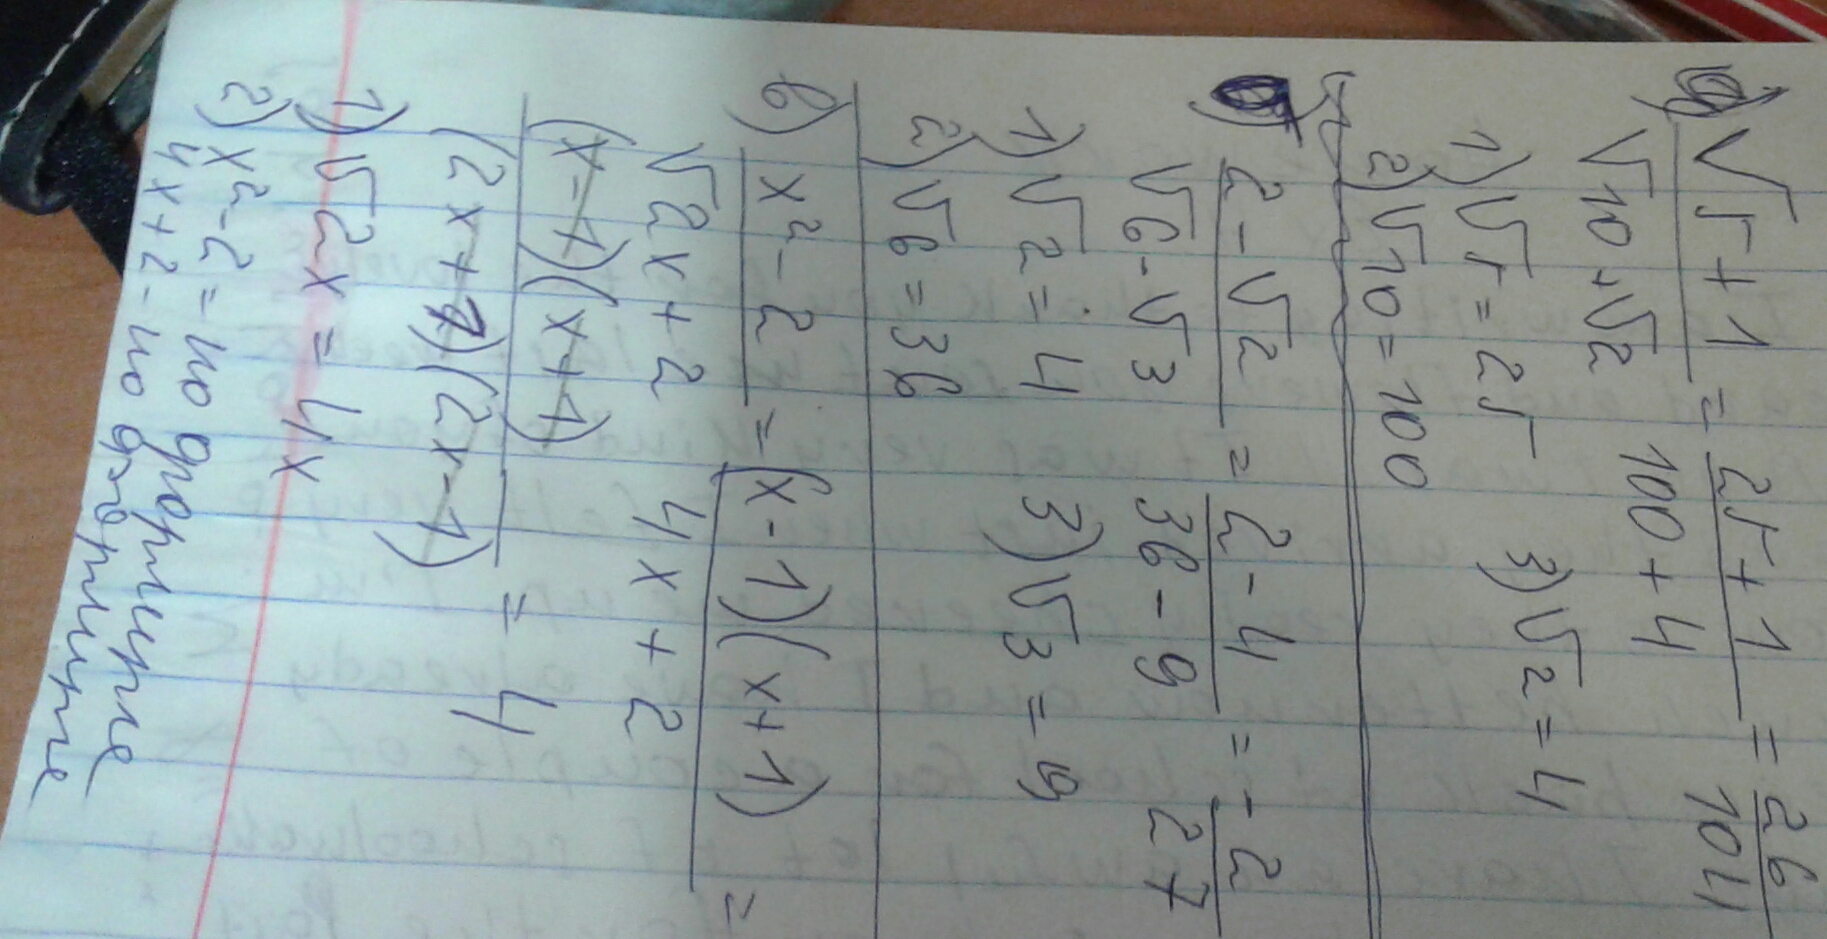 а) √5+1 = 25+1 = 26
√10+√2 100+4 104
1) √5=25 3) √2=4
2) √10=100
б) 2-√2 = 2-4 = -2
√6-√3 36-9 27
1) √2=4 3) √3=9
2) √6=36
в) x²-2 = (x-1)(x+1) =
√2x+2 4x+2
(x-1)(x+1) = 4
(2x+1)(2x-1)
1) √2x=4x
2) x²-2=по формуле
4x+2-по формуле